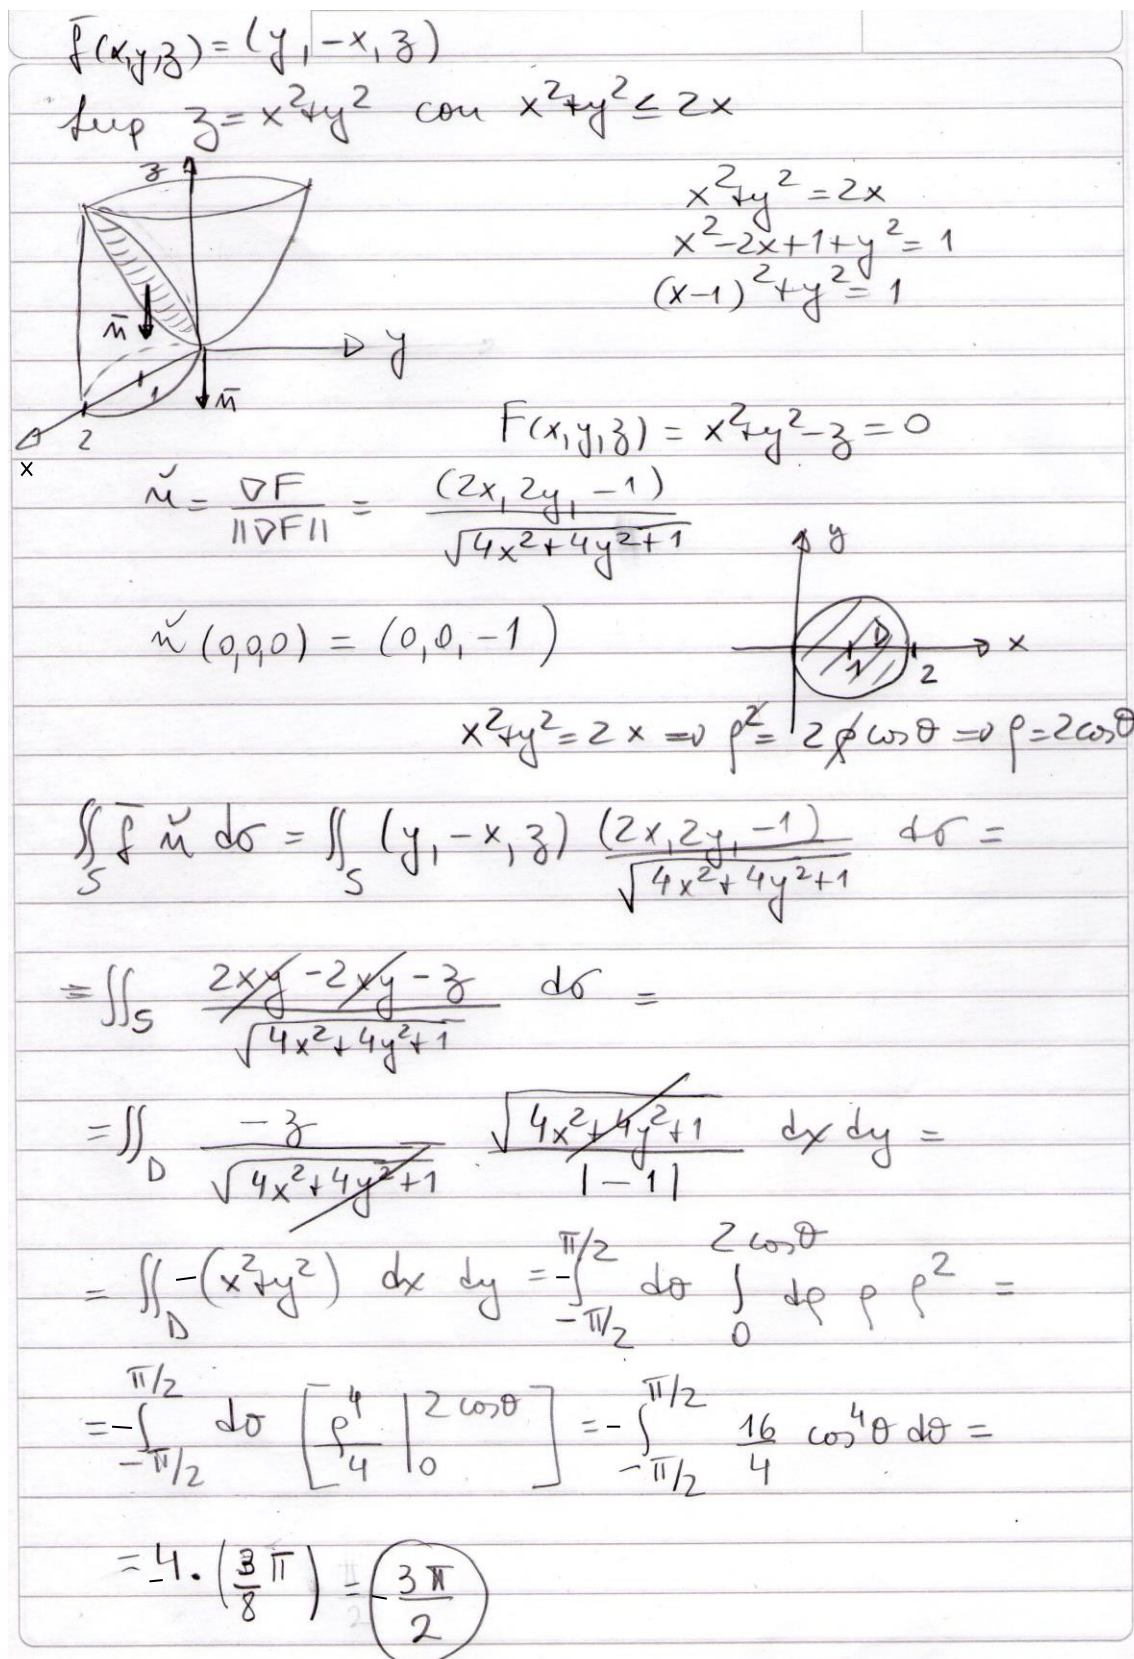 f̄(x,y,z) = (y, -x, z)
Sup z = x²+y² con x²+y² ≤ 2x
z
x²+y² = 2x
x²-2x+1+y² = 1
(x-1)²+y² = 1
n̄
y
1
n̄
2
x
F(x,y,z) = x²+y²-z = 0
ň = ∇F / ||∇F|| = (2x, 2y, -1) / √(4x²+4y²+1)
y
ň (0,0,0) = (0,0,-1)
D
x
1
2
x²+y² = 2x ⇒ ρ² = 2ρ cosθ ⇒ ρ = 2cosθ
∬_S f̄ ň dσ = ∬_S (y, -x, z) (2x, 2y, -1) / √(4x²+4y²+1) dσ =
= ∬_S (2xy - 2xy - z) / √(4x²+4y²+1) dσ =
= ∬_D -z / √(4x²+4y²+1) √(4x²+4y²+1) / |-1| dx dy =
= ∬_D -(x²+y²) dx dy = -∫_{-π/2}^{π/2} dθ ∫_0^{2cosθ} dρ ρ ρ² =
= -∫_{-π/2}^{π/2} dθ [ρ⁴/4 |_0^{2cosθ}] = -∫_{-π/2}^{π/2} 16/4 cos⁴θ dθ =
= -4 · (3/8 π) = -3π/2